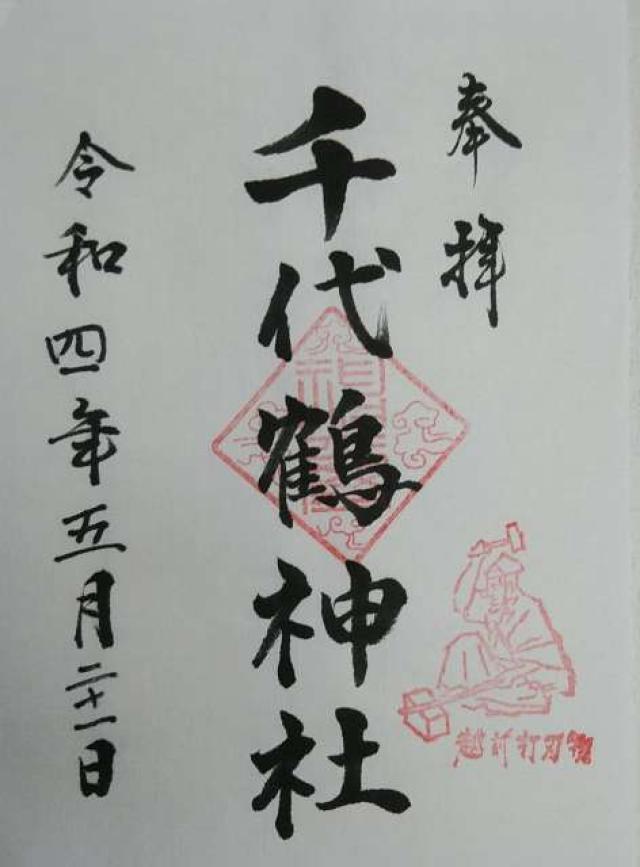 奉拝
千代鶴神社
令和四年五月二十一日
越前打刃物